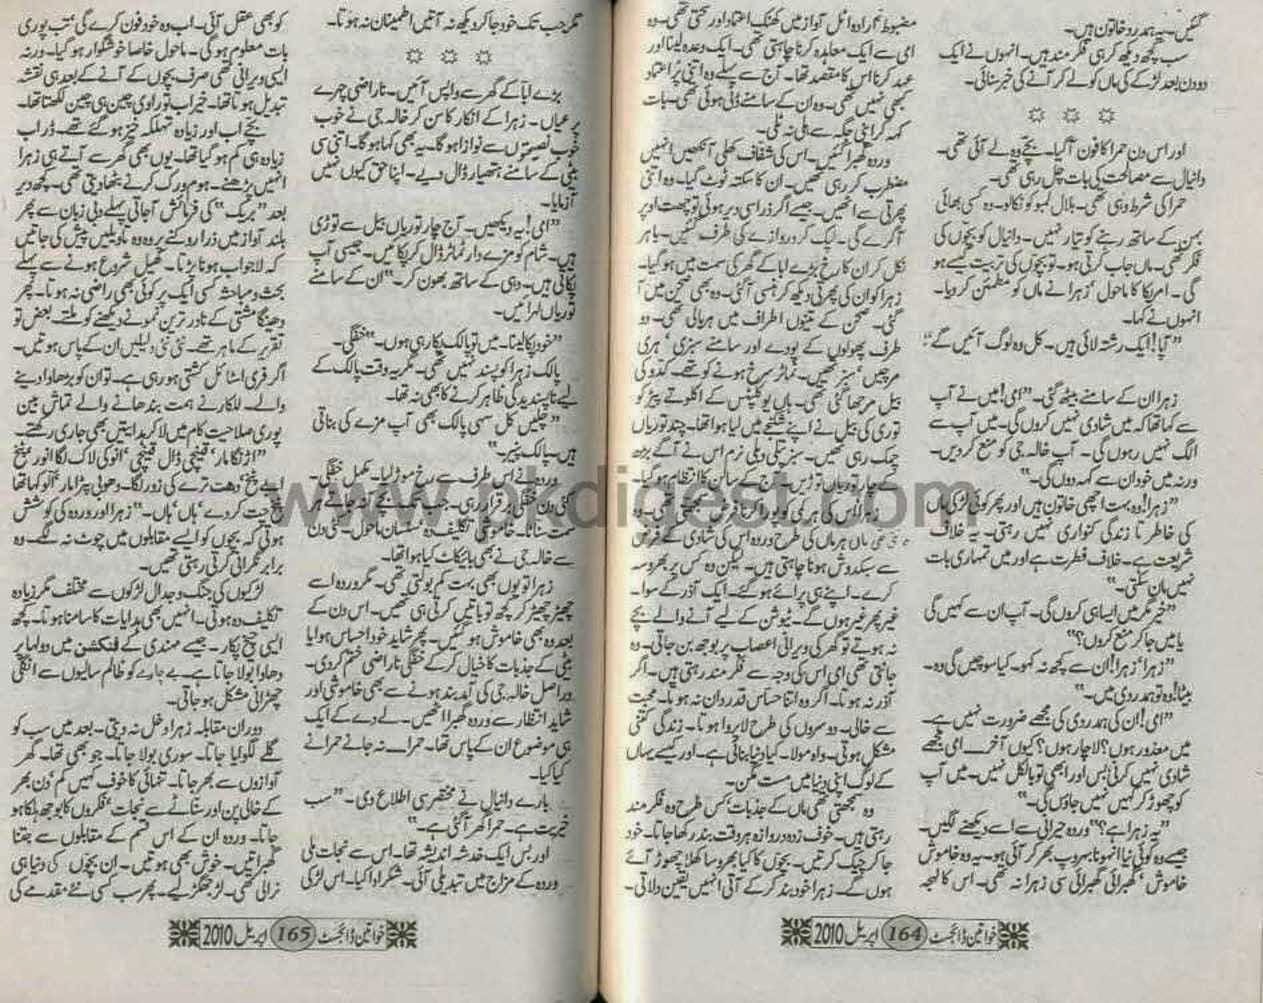 گئیں۔ یہ ہمدرد خاتون ہیں۔
سب کچھ دیکھ کر ہی فکر مند ہیں۔ انہوں نے ایک
دو دن بعد لڑکے کی ماں کو لے کر آنے کی خبر سنائی۔
اور اس دن حمرا کا فون آگیا۔ بچے وہ لے آئی تھی۔
دانیال سے مصالحت کی بات چل رہی تھی۔
حمرا کی شرط وہی تھی۔ بلال لمبو کو نکالو۔ وہ کسی بھائی
بہن کے ساتھ رہنے کو تیار نہیں۔ دانیال کو بچوں کی
فکر تھی۔ ماں جاب کرتی ہو۔ تو بچوں کی تربیت کیسے ہو
گی۔ امریکا کا ماحول‘ زہرا نے ماں کو مطمئن کر دیا۔
انہوں نے کہا۔
”آپا! ایک رشتہ لائی ہیں۔ کل وہ لوگ آئیں گے“
زہرا ان کے سامنے بیٹھ گئی۔ ”امی! میں نے آپ
سے کہا تھا کہ میں شادی نہیں کروں گی۔ میں آپ سے
الگ نہیں رہوں گی۔ آپ خالہ جی کو منع کر دیں۔
ورنہ میں خود ان سے کہہ دوں گی۔“
”زہرا! وہ بہت اچھی خاتون ہیں اور پھر کوئی لڑکی ماں
کی خاطر تا زندگی کنواری نہیں رہتی۔ یہ خلاف
شریعت ہے۔ خلاف فطرت ہے اور میں تمہاری بات
نہیں مان سکتی۔“
”خیر مگر میں ایسا ہی کروں گی۔ آپ ان سے کہیں گی
یا میں جا کر منع کروں؟“
”زہرا‘ زہرا! ان سے کچھ نہ کہو۔ کیا سوچیں گی وہ۔
بیٹا! وہ تو ہمدردی میں۔“
”امی! ان کی ہمدردی کی مجھے ضرورت نہیں ہے۔
میں معذور ہوں؟ لاچار ہوں؟ کیوں آخر۔ امی مجھے
شادی نہیں کرنی بس اور ابھی تو بالکل نہیں۔ میں آپ
کو چھوڑ کر کہیں نہیں جاؤں گی۔“
”یہ زہرا ہے؟“ وردہ حیرانی سے اسے دیکھنے لگیں۔
جیسے وہ کوئی نیا انہونا بہروپ بھر کر آئی ہو۔ یہ وہ خاموش
خاموش‘ گھبرائی گھبرائی سی زہرا نہ تھی۔ اس کا لہجہ
مضبوط‘ ارادہ اٹل‘ آواز میں کھنک اعتماد اور سختی تھی۔ وہ
امی سے ایک معاہدہ کرنا چاہتی تھی۔ ایک وعدہ لینا اور
عہد کرنا اس کا مقصد تھا۔ آج سے پہلے وہ اتنی پُر اعتماد
کبھی نہیں تھی۔ وہ ان کے سامنے ڈٹی ہوئی تھی۔ بات
کہہ کر اپنی جگہ سے ہلی نہ ٹلی۔
وردہ گھبرا گئیں۔ اس کی شفاف کھلی آنکھیں انہیں
مضطرب کر رہی تھیں۔ ان کا سکتہ ٹوٹ گیا۔ وہ اتنی
پھرتی سے اٹھیں۔ جیسے اگر ذرا سی دیر ہوئی تو چھت اوپر
آ گرے گی۔ لپک کر دروازے کی طرف گئیں۔ باہر
نکل کر ان کا رخ بڑے ابا کے گھر کی سمت میں ہو گیا۔
زہرا کو ان کی پھرتی دیکھ کر ہنسی آ گئی۔ وہ بھی صحن میں آ
گئی۔ صحن کے تینوں اطراف میں ہریالی تھی۔ دو
طرف پھولوں کے پودے اور سامنے سبزی‘ ہری
مرچیں‘ سبز تھیں۔ ٹماٹر سرخ ہونے کو تھے۔ کدو کی
بیل مرجھا گئی تھی۔ ہاں یوکلپٹس کے اکلوتے پیڑ کو
توری کی بیل نے اپنے شکنجے میں لیا ہوا تھا۔ چند توریاں
چمک رہی تھیں۔ سبز پتلی دبلی نرم اس نے آگے بڑھ
کے چار توریاں توڑیں۔ آج کے سالن کا انتظام ہو گیا۔
زہرا اس کی ہر کمی کو پورا کرنا فرض سمجھتی تھی۔ وہ
ماں ہر ماں کی طرح وردہ اس کی شادی کے فرض
سے سبکدوش ہونا چاہتی ہیں۔ لیکن وہ کس پر بھروسہ
کرے۔ اپنے ہی پرائے ہو گئے۔ ایک آذر کے سوا۔
غیر پھر غیر ہوں گے۔ ٹیوشن کے لیے آنے والے بچے
نہ ہوتے تو گھر کی ویرانی اعصاب پر بوجھ بن جاتی۔ وہ
جانتی تھی امی اس کی وجہ سے فکر مند رہتی ہیں۔ اگر
آذر نہ ہوتا۔ اگر وہ اتنا حساس قدر دان نہ ہوتا۔ محبت
سے خالی۔ دوسروں کی طرح لاپروا ہوتا۔ زندگی کتنی
مشکل ہوتی۔ واہ مولا۔ کیا دنیا بنائی ہے۔ اور کیسے یہاں
کے لوگ اپنی دنیا میں مست مگن۔
وہ سمجھتی تھی ماں کے جذبات‘ کس طرح وہ فکر مند
رہتی ہیں۔ خوف زدہ دروازہ ہر وقت بند رکھا جاتا۔ خود
جا کر چیک کرتیں۔ بچوں کا کیا بھروسا کھلا چھوڑ آئے
ہوں گے۔ زہرا خود بند کر کے آتی انہیں یقین دلاتی۔
خواتین ڈائجسٹ 164 اپریل 2010
مگر جب تک خود جا کر دیکھ نہ آتیں اطمینان نہ ہوتا۔
بڑے ابا کے گھر سے واپس آئیں۔ ناراضی چہرے
پر عیاں۔ زہرا کے انکار کا سن کر خالہ جی نے خوب
خوب نصیحتوں سے نوازا ہو گا۔ یہ بھی کہا ہو گا۔ اتنی سی
بیٹی کے سامنے ہتھیار ڈال دیے۔ اپنا حق کیوں نہیں
آزمایا۔
”امی! یہ دیکھیں۔ آج چار توریاں بیل سے توڑی
ہیں۔ شام کو مزے دار ٹماٹر ڈال کر پکائیں۔ جیسی آپ
پکاتی ہیں۔ دہی کے ساتھ بھون کر۔“ ان کے سامنے
توریاں لہرائیں۔
”خود پکا لینا۔ میں تو پالک پکا رہی ہوں۔“ خفگی۔
پالک زہرا کو پسند نہیں تھی۔ مگر یہ وقت پالک کے
لیے ناپسندیدگی ظاہر کرنے کا بھی نہ تھا۔
”چلیں کل سہی پالک بھی آپ مزے کی بناتی
ہیں۔ پالک پنیر۔“
وردہ نے اس طرف سے رخ موڑ لیا۔ مکمل خفگی۔
کئی دن خفگی برقرار رہی۔ جب بچے آ جاتے ہر
سمت سناٹا۔ خاموشی تکلیف دہ‘ سنسان ماحول۔ کئی دن
سے خالہ جی نے بھی بائیکاٹ کیا ہوا تھا۔
زہرا تو یوں بھی بہت کم بولتی تھی۔ مگر وردہ اسے
چھیڑ چھیڑ کر کچھ تو باتیں کرتی ہی تھیں۔ اس دن کے
بعد وہ بھی خاموش ہو گئیں۔ پھر شاید خود احساس ہوا یا
بیٹی کے جذبات کا خیال کر کے خفگی ناراضی ختم کر دی۔
دراصل خالہ جی کی آمد بند ہونے سے بھی خاموشی اور
شاید انتظار سے وردہ گھبرا اٹھیں۔ لے دے کے ایک
ہی موضوع ان کے پاس تھا۔ حمرا۔ نہ جانے حمرا نے
کیا کیا۔
بارے دانیال نے مختصر سی اطلاع دی۔ ”سب
خیریت ہے۔ حمرا گھر آ گئی ہے۔“
اور بس ایک خدشہ اندیشہ تھا۔ اس سے نجات ملی
وردہ کے مزاج میں تبدیلی آئی۔ شکر ادا کیا۔ اس لڑکی
کو بھی عقل آئی۔ اب وہ خود فون کرے گی‘ تب پوری
بات معلوم ہو گی۔ ماحول خاصا خوشگوار ہو گیا۔ ورنہ
ایسی ویرانی تھی صرف بچوں کے آنے کے بعد ہی نقشہ
تبدیل ہوتا تھا۔ خیر اب تو راوی چین ہی چین لکھتا تھا۔
بچے اب اور زیادہ تہلکہ خیز ہو گئے تھے۔ ڈر اب
زیادہ ہی کم ہو گیا تھا۔ یوں بھی گھر سے آتے ہی زہرا
انہیں پڑھنے۔ ہوم ورک کرنے بٹھا دیتی تھی۔ کچھ دیر
بعد ”بریک“ کی فرمائش آ جاتی پہلے دبی زبان سے پھر
بلند آواز میں ذرا روکنے پر وہ وہ تاویلیں پیش کی جاتیں
کہ لاجواب ہونا پڑتا۔ کھیل شروع ہونے سے پہلے
بحث و مباحثہ کسی ایک پر کوئی بھی راضی نہ ہوتا۔ پھر
دھینگا مشتی کے نادر ترین نمونے دیکھنے کو ملتے۔ بعض تو
تقریر کے ماہر تھے۔ نئی نئی دلیلیں ان کے پاس ہوتیں۔
اگر فری اسٹائل کشتی ہو رہی ہے۔ تو ان کو بڑھاوا دینے
والے۔ للکار نے ہمت بندھانے والے تماش بین
پوری صلاحیت کام میں لا کر ہدایتیں بھی جاری رکھتے۔
”اڑنگا مار‘ قینچی ڈال قینچی‘ الو کی لاک لگا اور پٹخ
کرتے جا کردے‘ ہاں‘ ہاں۔“ زہرا اور وردہ کی کوشش
ہوتی کہ بچوں کو ایسے مقابلوں میں چوٹ نہ لگے۔ وہ
برابر نگرانی کرتی رہتی تھیں۔
لڑکیوں کی جنگ و جدال لڑکوں سے مختلف مگر زیادہ
تکلیف دہ ہوتی۔ انہیں بھی ہدایات کا سامنا ہوتا۔ کچھ
ایسی چیخ پکار۔ جیسے مہندی کے فنکشن میں دولہا پر
دھاوا بولا جاتا ہے۔ بے چارے کو ظالم سالیوں سے انگلی
چھڑانی مشکل ہو جاتی۔
دوران مقابلہ زہرا دخل نہ دیتی۔ بعد میں سب کو
گلے لگوایا جاتا۔ سوری بولا جاتا۔ جو بھی تھا۔ گھر
آوازوں سے بھر جاتا۔ تنہائی کا خوف کہیں کم‘ دن بھر
کے خالی پن اور سناٹے سے نجات‘ فکروں کا بوجھ ہلکا ہو
جاتا۔ وردہ ان کے اس قسم کے مقابلوں سے جتنا
گھبراتیں۔ خوش بھی ہوتیں۔ ان بچوں کی دنیا ہی
نرالی تھی۔ لڑ جھگڑ لیے۔ پھر سب کسی نئے مقدمے کی
خواتین ڈائجسٹ 165 اپریل 2010
www.pkdigest.com